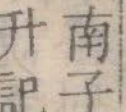 南子
升記